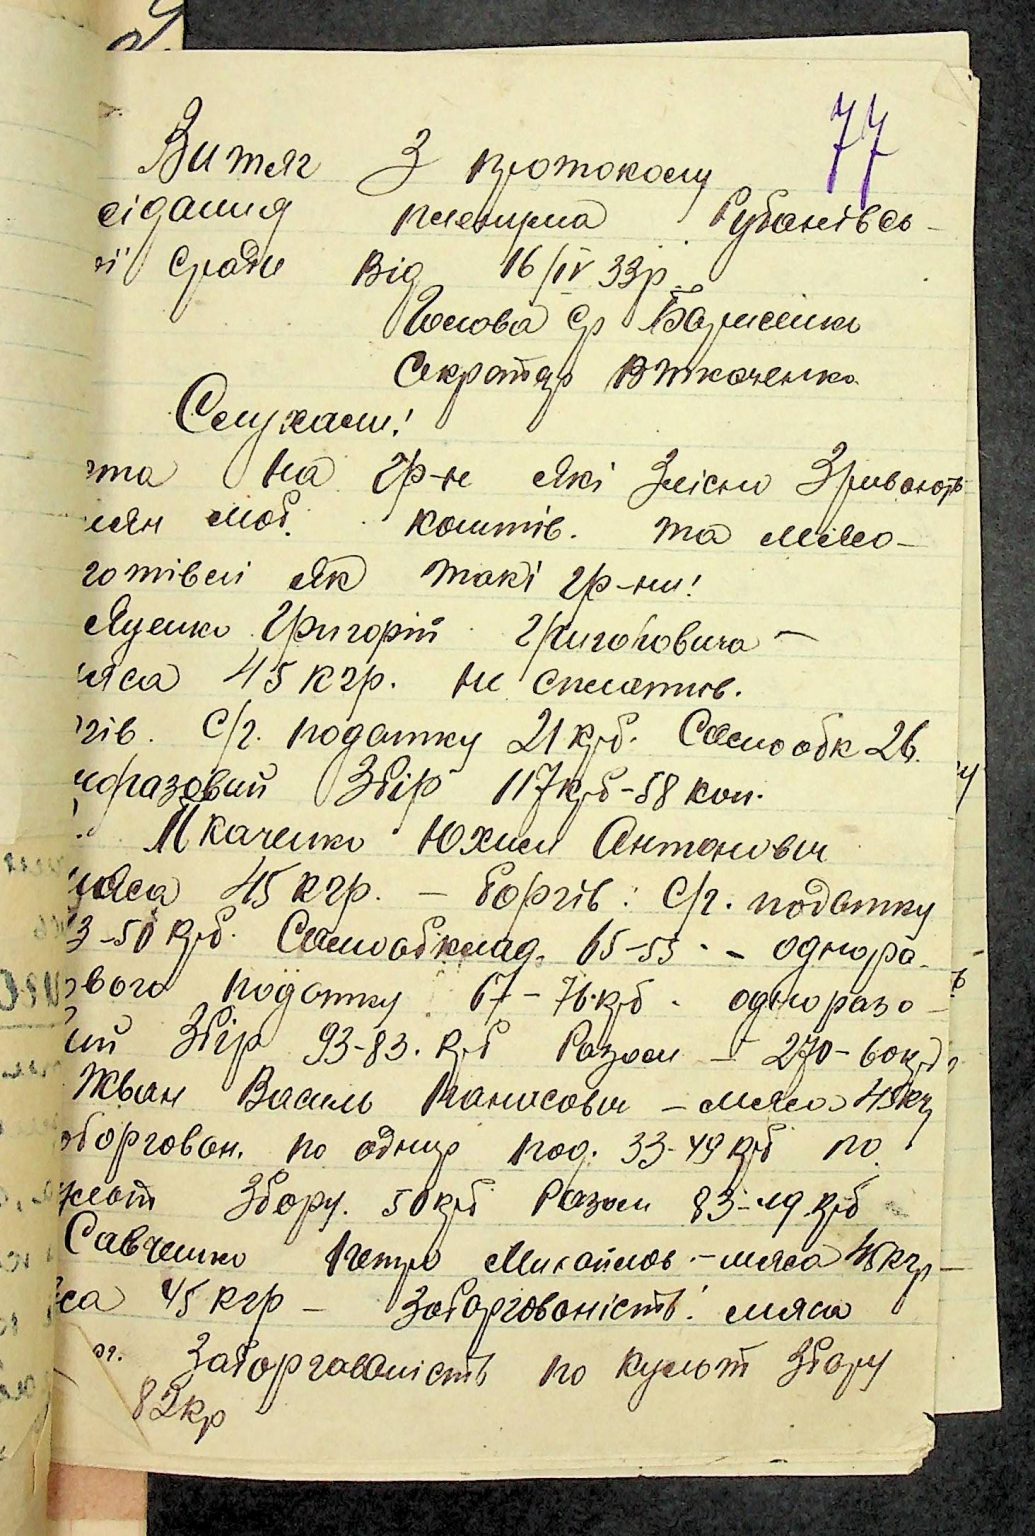 77
Витяг З протокому
сідання пленума Рубанівсь-
ої Сради Від 16/IV 33р.
Голова Ср
Секротар В Ткаченко
Слухали!
та на гр-н які Злісно Зривають
лян моб. коштів. та мясо-
готівлі як такі гр-ни!
Яценко Григорій Григоровича -
мяса 45 кгр. не сплатив.
гів. С/г. податку 21 крб. Самообк 26.
норазовий Збір 117 крб-58 коп.
Ткаченко Юхим Антонович
мяса 45 кгр. - боргів: С/г. податку
3-50 крб. Самообклад. 65-53 - однора-
ового податку 67-76 крб. одноразо-
ий Збір 93-83. крб Разом - 270-60крб
Жван Василь Панасович - мяса 45кг
оборгован. по однор под. 33-49 крб по
жот Збору. 50 крб Разом 83-49 крб
Савченко Петро Михайлов. - мяса 45кгр-
са 45 кгр - Заборгованість: мяса
ог. Заборгованість по культ Збору
82кр